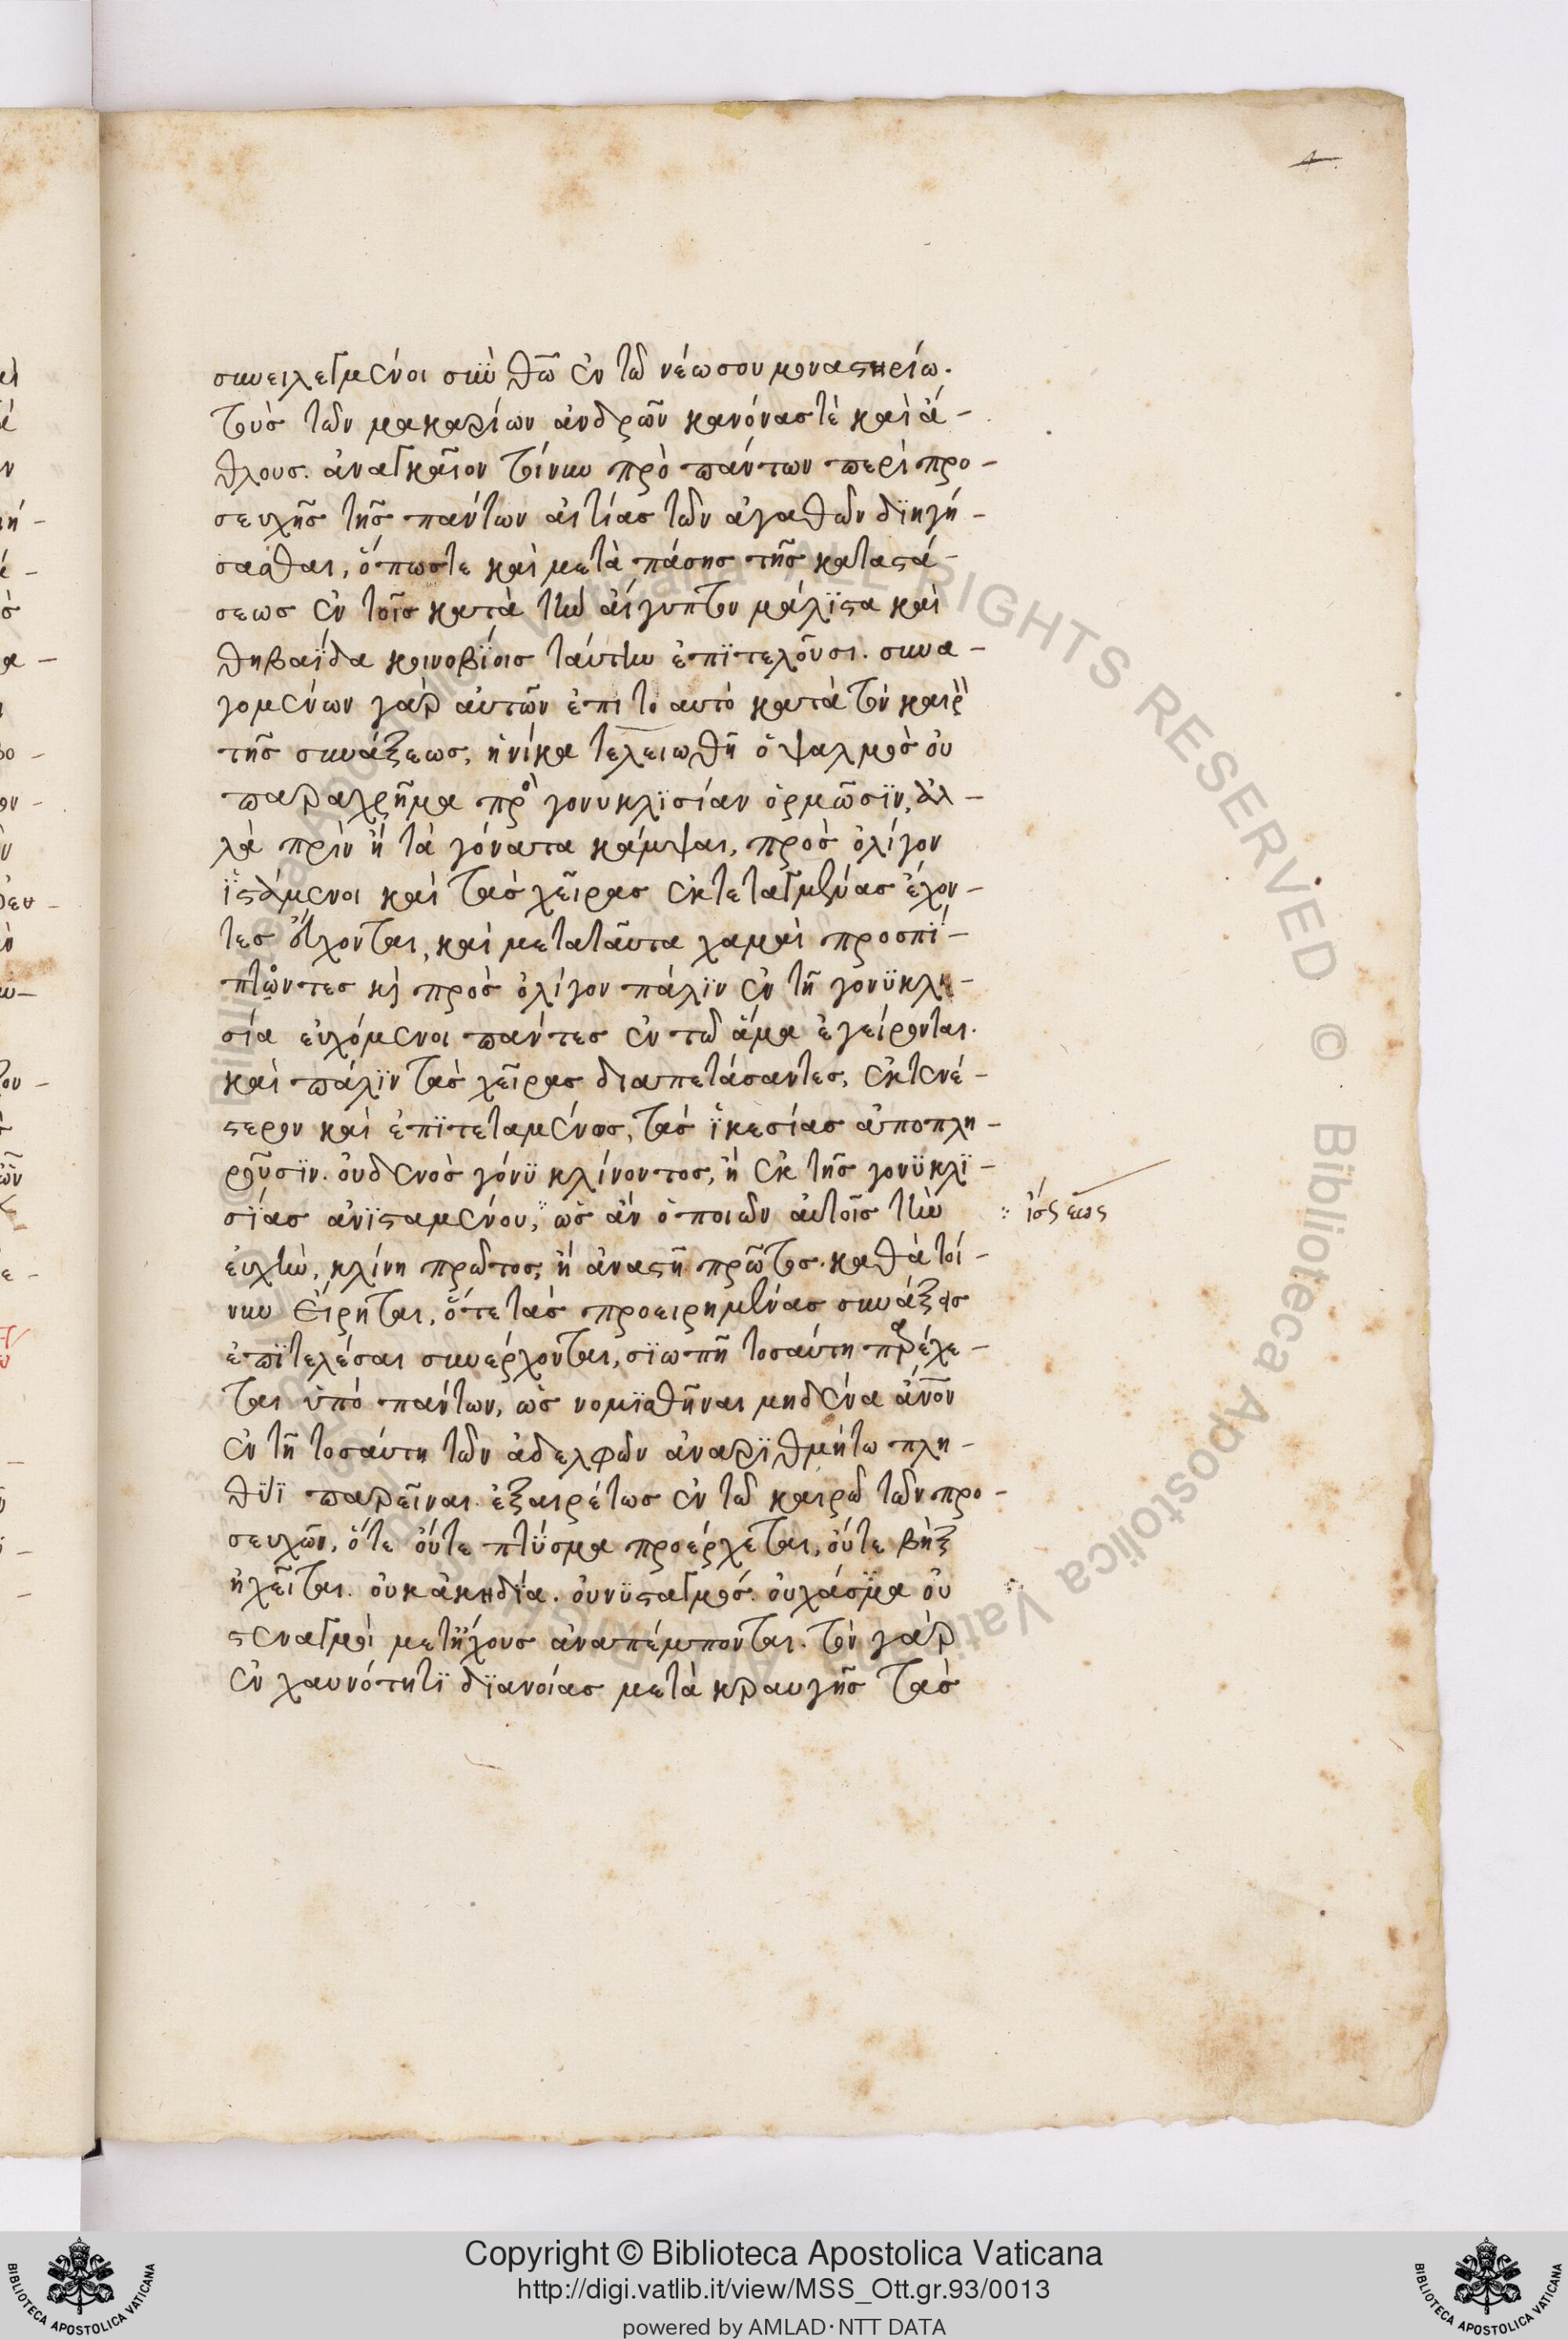 4.
συνειλεγμένοι σὺν θῶ ἐν τῶ νέω σου μοναστηρίω.
τοὺς τῶν μακαρίων ἀνδρῶν κανόνας τὲ καὶ ἄ-
θλους. ἀναγκαῖον τοίνυν πρὸ πάντων περὶ προ-
σευχῆς τῆς πάντων αἰτίας τῶν ἀγαθῶν διηγή-
σασθαι, ὅπως τε καὶ μετὰ πάσης τῆς καταστά-
σεως ἐν τοῖς κατὰ τὴν αἴγυπτον μάλϊστα καὶ
θηβαΐδα κοινοβϊοις ταύτην ἐπϊτελοῦσι. συνα-
γομένων γὰρ αὐτῶν ἐπὶ το αυτὸ κατὰ τὸν καιρὸ
τῆς συνάξεως, ἡνίκα τελειωθῆ ὁ ψαλμὸς οὐ
παραχρῆμα πρὸ γονυκλϊσίαν ὁρμῶσϊν, ἀλ-
λὰ πρὶν ἢ τὰ γόνατα κάμψαι, πρὸς ὀλίγον
ϊστάμενοι καὶ τὰς χεῖρας ἐκτεταγμένας ἔχον-
τες εὔχονται, καὶ μεταταῦτα χαμαὶ προσπί-
πτοντες κὶ πρὸς ὀλίγον πάλϊν ἐν τῆ γονϋκλι-
σία εὐχόμενοι πάντες ἐν τῶ ἅμα ἐγείρονται.
καὶ πάλϊν τὰς χεῖρας διαπετάσαντες, ἐκτενέ-
στερον καὶ ἐπϊτεταμένως, τὰς ἱκεσίας ἀποπλη-
ροῦσϊν. οὐδενὸς γόνϋ κλίνοντος, ἢ ἐκ τῆς γονϋκλϊ-
σϊας ἀνϊσταμένου, ὡς ἂν ὁ ποιῶν αὐτοῖς τὴν
εὐχὴν, κλίνη πρῶτος, ἢ ἀναστῆ πρῶτος. καθὰ τοί-
νυν εἴρηται, ὅτε τὰς προειρημένας συνάξεις
ἐπϊτελέσαι συνέρχονται, σϊωπῆ τοσαύτη παρέχε-
ται ὑπὸ πάντων, ὡς νομϊσθῆναι μηδένα ἄνον
ἐν τῆ τοσαύτη τῶν ἀδελφῶν ἀναρϊθμήτω πλη-
θϋϊ παρεῖναι. ἐξαιρέτως ἐν τῶ καιρῶ τῶν προ-
σευχῶν, ὅτε οὔτε πτϋσμα προέρχεται, οὔτε βὴξ
ἠχεῖται. οὐκ ἀκηδία. οὐ νϋσταγμός. οὐ χάσμα οὐ
στεναγμοὶ μετήχους ἀναπέμπονται. τὸν γὰρ
ἐν χαυνότητϊ δϊανοίας μετὰ κραυγῆς τὰς
Copyright © Biblioteca Apostolica Vaticana
http://digi.vatlib.it/view/MSS_Ott.gr.93/0013
powered by AMLAD·NTT DATA